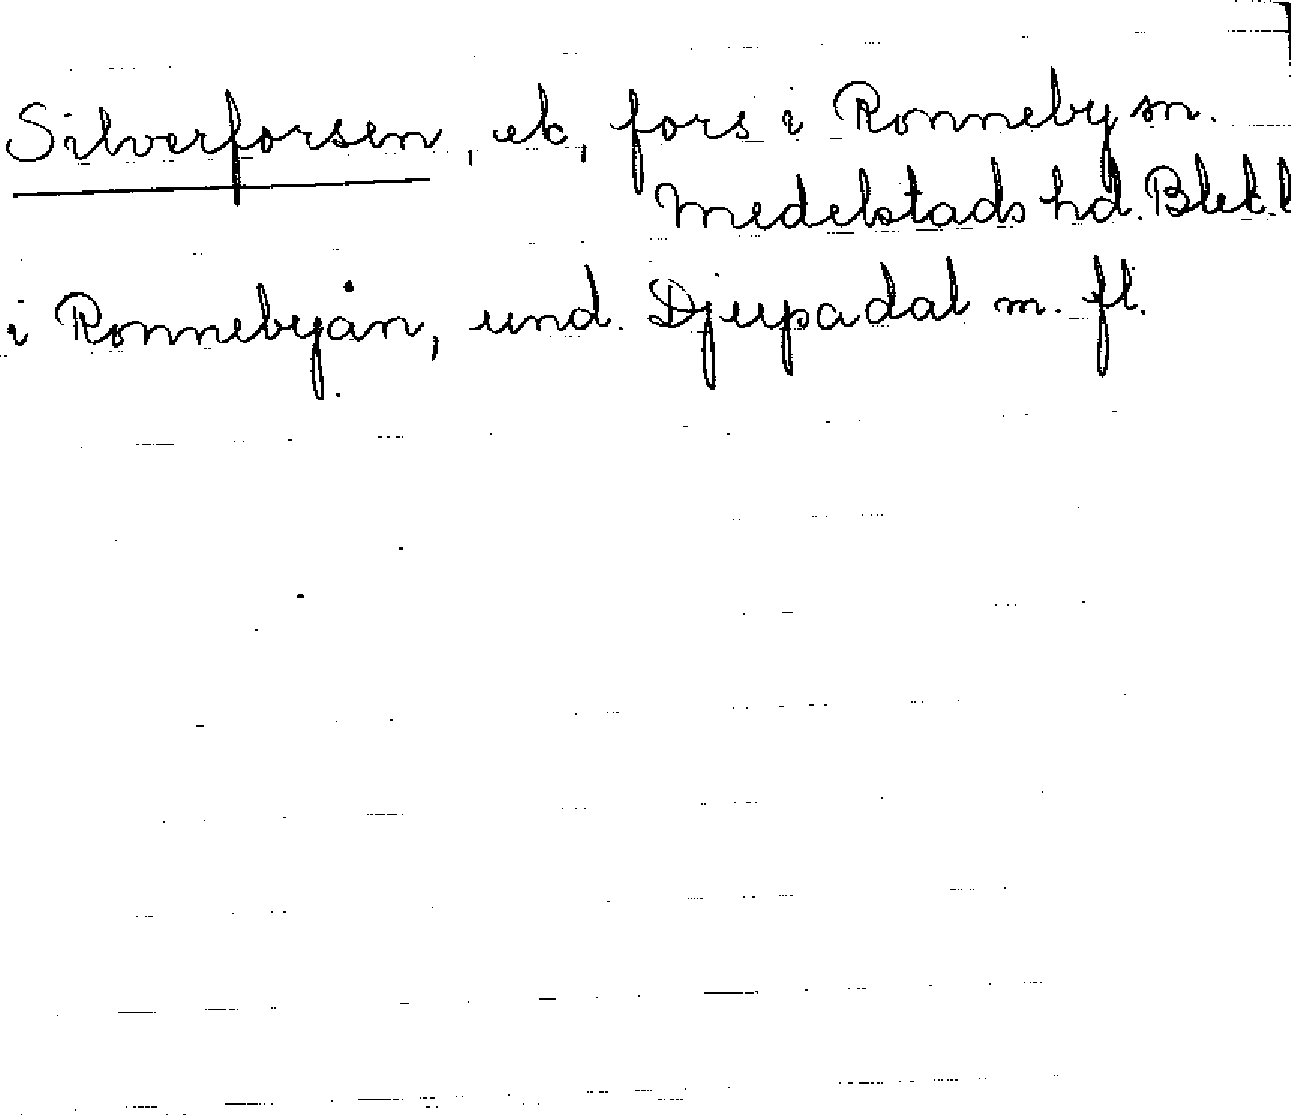 Silverforsen, ek, fors i Ronneby sn.
Medelstads hd. Blek.l
i Ronnebyån, und. Djupadal m. fl.